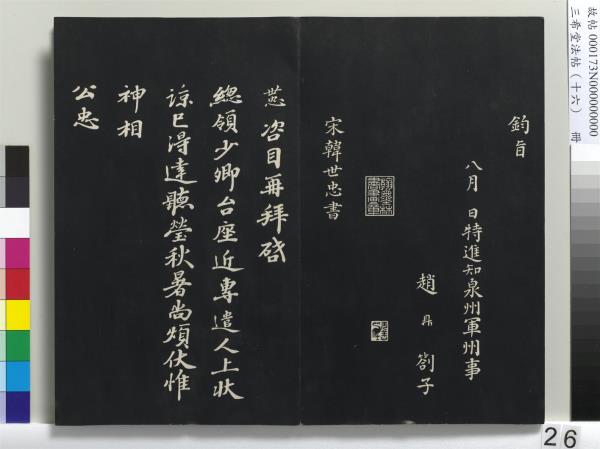 故帖 000173N000000000
三希堂法帖（十六） 冊
鈞旨
八月 日特進知泉州軍州事
趙鼎劄子
宋韓世忠書
咨目再拜啓
總領少卿台座近專遣人上狀
諒已得達聽瑩秋暑尚煩伏惟
神相
公忠
26